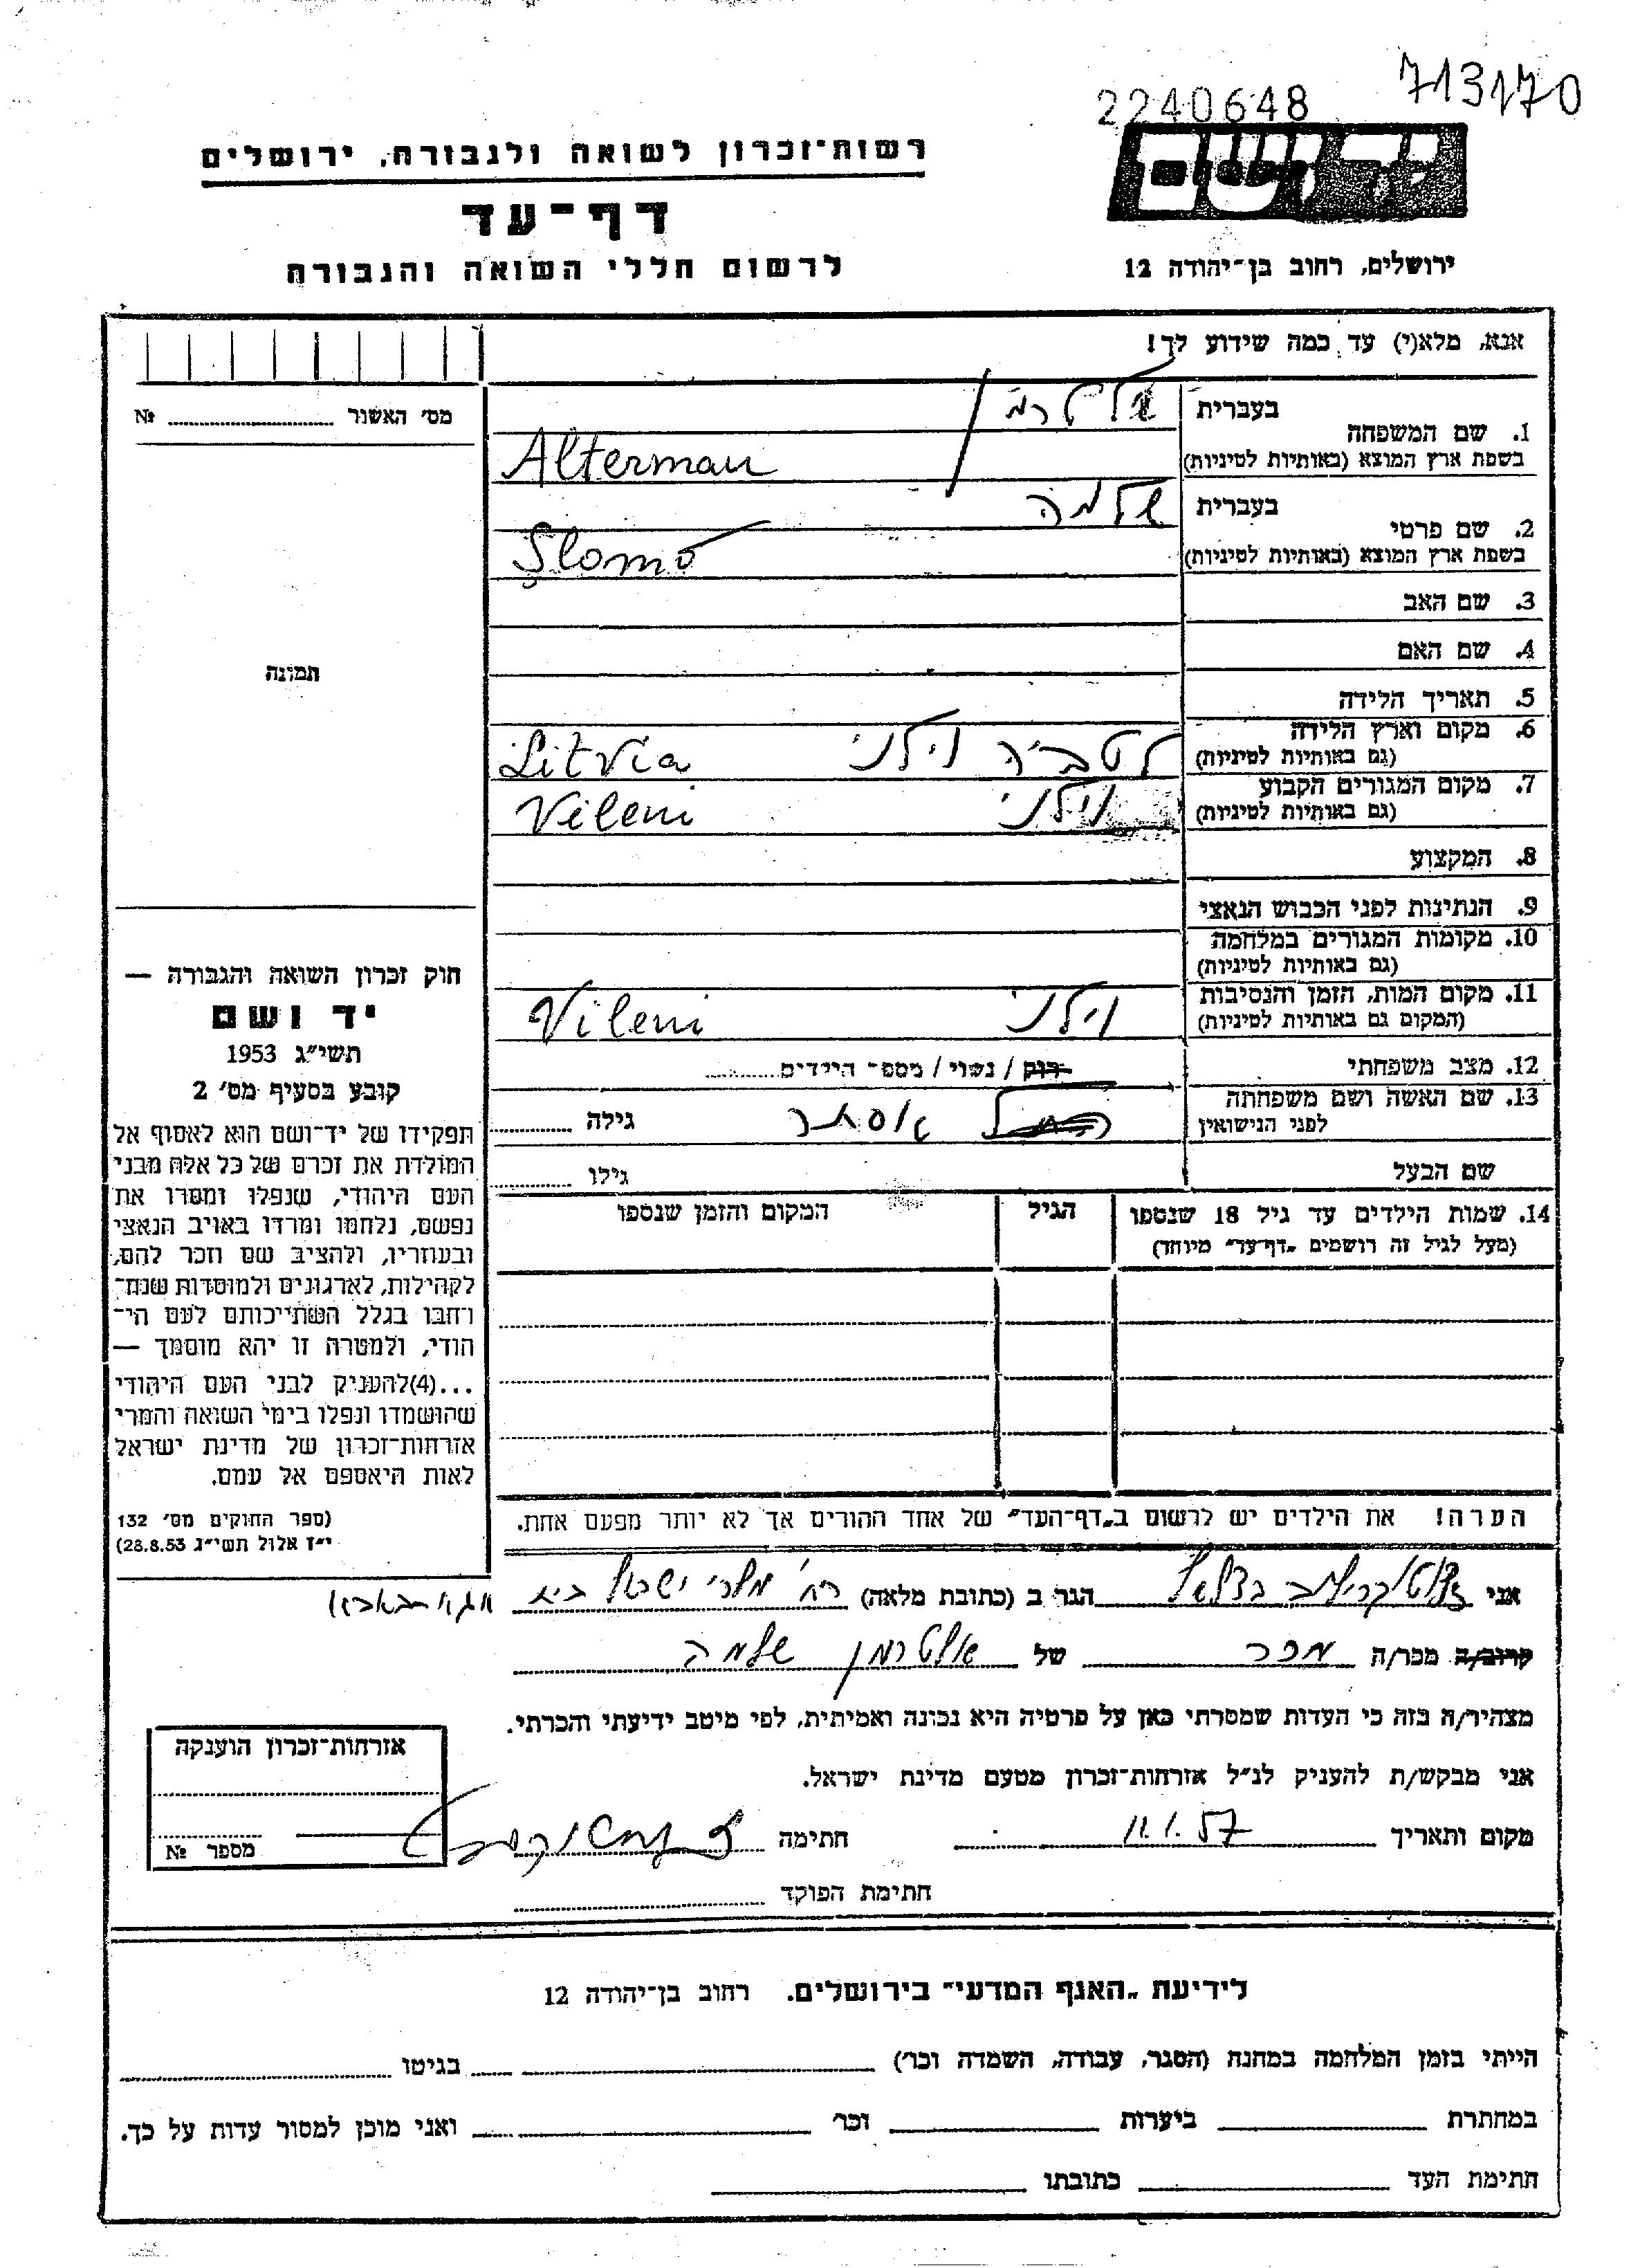 713170
2240648
יד ושם
רשות־זכרון לשואה ולגבורה, ירושלים
דף־עד
לרשום חללי השואה והגבורה
ירושלים, רחוב בן־יהודה 12
אנא, מלא(י) עד כמה שידוע לך!
מס׳ האשור № 
תמונה
חוק זכרון השואה והגבורה —
יד ושם
תשי״ג 1953
קובע בסעיף מס׳ 2
תפקידו של יד־ושם הוא לאסוף אל
המולדת את זכרם של כל אלה מבני
העם היהודי, שנפלו ומסרו את
נפשם, נלחמו ומרדו באויב הנאצי
ובעוזריו, ולהציב שם וזכר להם,
לקהילות, לארגונים ולמוסדות שנח־
רחבו בגלל השתייכותם לעם הי־
הודי, ולמטרה זו יהא מוסמך —
...(4)להעניק לבני העם היהודי
שהושמדו ונפלו בימי השואה והמרי
אזרחות־זכרון של מדינת ישראל
לאות היאספם אל עמם.
(ספר החוקים מס׳ 132
י״ז אלול תשי״ג 28.8.53)
בעברית אלטרמן
1. שם המשפחה
בשפת ארץ המוצא (באותיות לטיניות) Alterman
בעברית שלמה
2. שם פרטי
בשפת ארץ המוצא (באותיות לטיניות) Şlomo
3. שם האב
4. שם האם
5. תאריך הלידה
6. מקום וארץ הלידה לטביה וילני Litvia
(גם באותיות לטיניות)
7. מקום המגורים הקבוע וילני Vileni
(גם באותיות לטיניות)
8. המקצוע
9. הנתינות לפני הכבוש הנאצי
10. מקומות המגורים במלחמה
(גם באותיות לטיניות)
11. מקום המות, הזמן והנסיבות וילני Vileni
(המקום גם באותיות לטיניות)
12. מצב משפחתי רוק / נשוי / מספר הילדים
13. שם האשה ושם משפחתה אסתר גילה
לפני הנישואין
שם הבעל גילו
14. שמות הילדים עד גיל 18 שנספו הגיל המקום והזמן שנספו
(מעל לגיל זה רושמים „דף־עד״ מיוחד)
הערה! את הילדים יש לרשום ב„דף־העד״ של אחד ההורים אך לא יותר מפעם אחת.
אני בצלאל הגר ב (כתובת מלאה) רח׳ מלכי ישראל בית
קרוב/ה מכר/ה מכר של אלטרמן שלמה
מצהיר/ה בזה כי העדות שמסרתי כאן על פרטיה היא נכונה ואמיתית, לפי מיטב ידיעתי והכרתי.
אני מבקש/ת להעניק לנ״ל אזרחות־זכרון מטעם מדינת ישראל.
מקום ותאריך 11.1.57 חתימה
חתימת הפוקד
אזרחות־זכרון הוענקה
מספר №
לידיעת „האגף המדעי״ בירושלים. רחוב בן־יהודה 12
הייתי בזמן המלחמה במחנה (הסגר, עבודה, השמדה וכר׳) בגיטו
במחתרת ביערות וכר׳ ואני מוכן למסור עדות על כך.
חתימת העד כתובתו